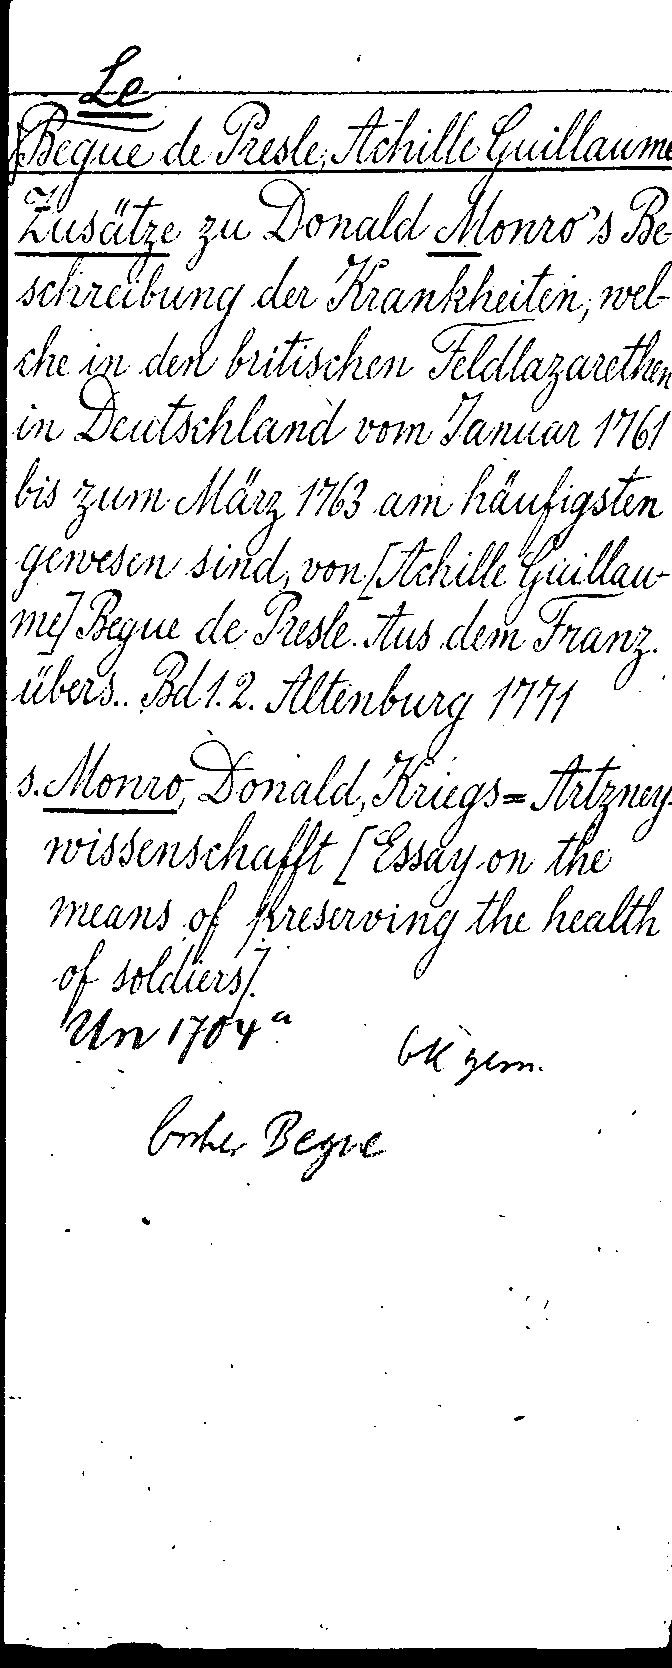 Le
Begue de Presle, Achille Guillaume
Zusätze zu Donald Monro's Be-
schreibung der Krankheiten, wel-
che in den britischen Feldlazarethen
in Deutschland vom Januar 1761
bis zum März 1763 am häufigsten
gewesen sind, von [Achille Guillau-
me] Begue de Presle. Aus dem Franz.
übers.. Bd 1.2. Altenburg 1771
s. Monro, Donald, Kriegs=Artzney-
wissenschafft [Essay on the
means of preserving the health
of soldiers].
Un 1704a
GK
Begue